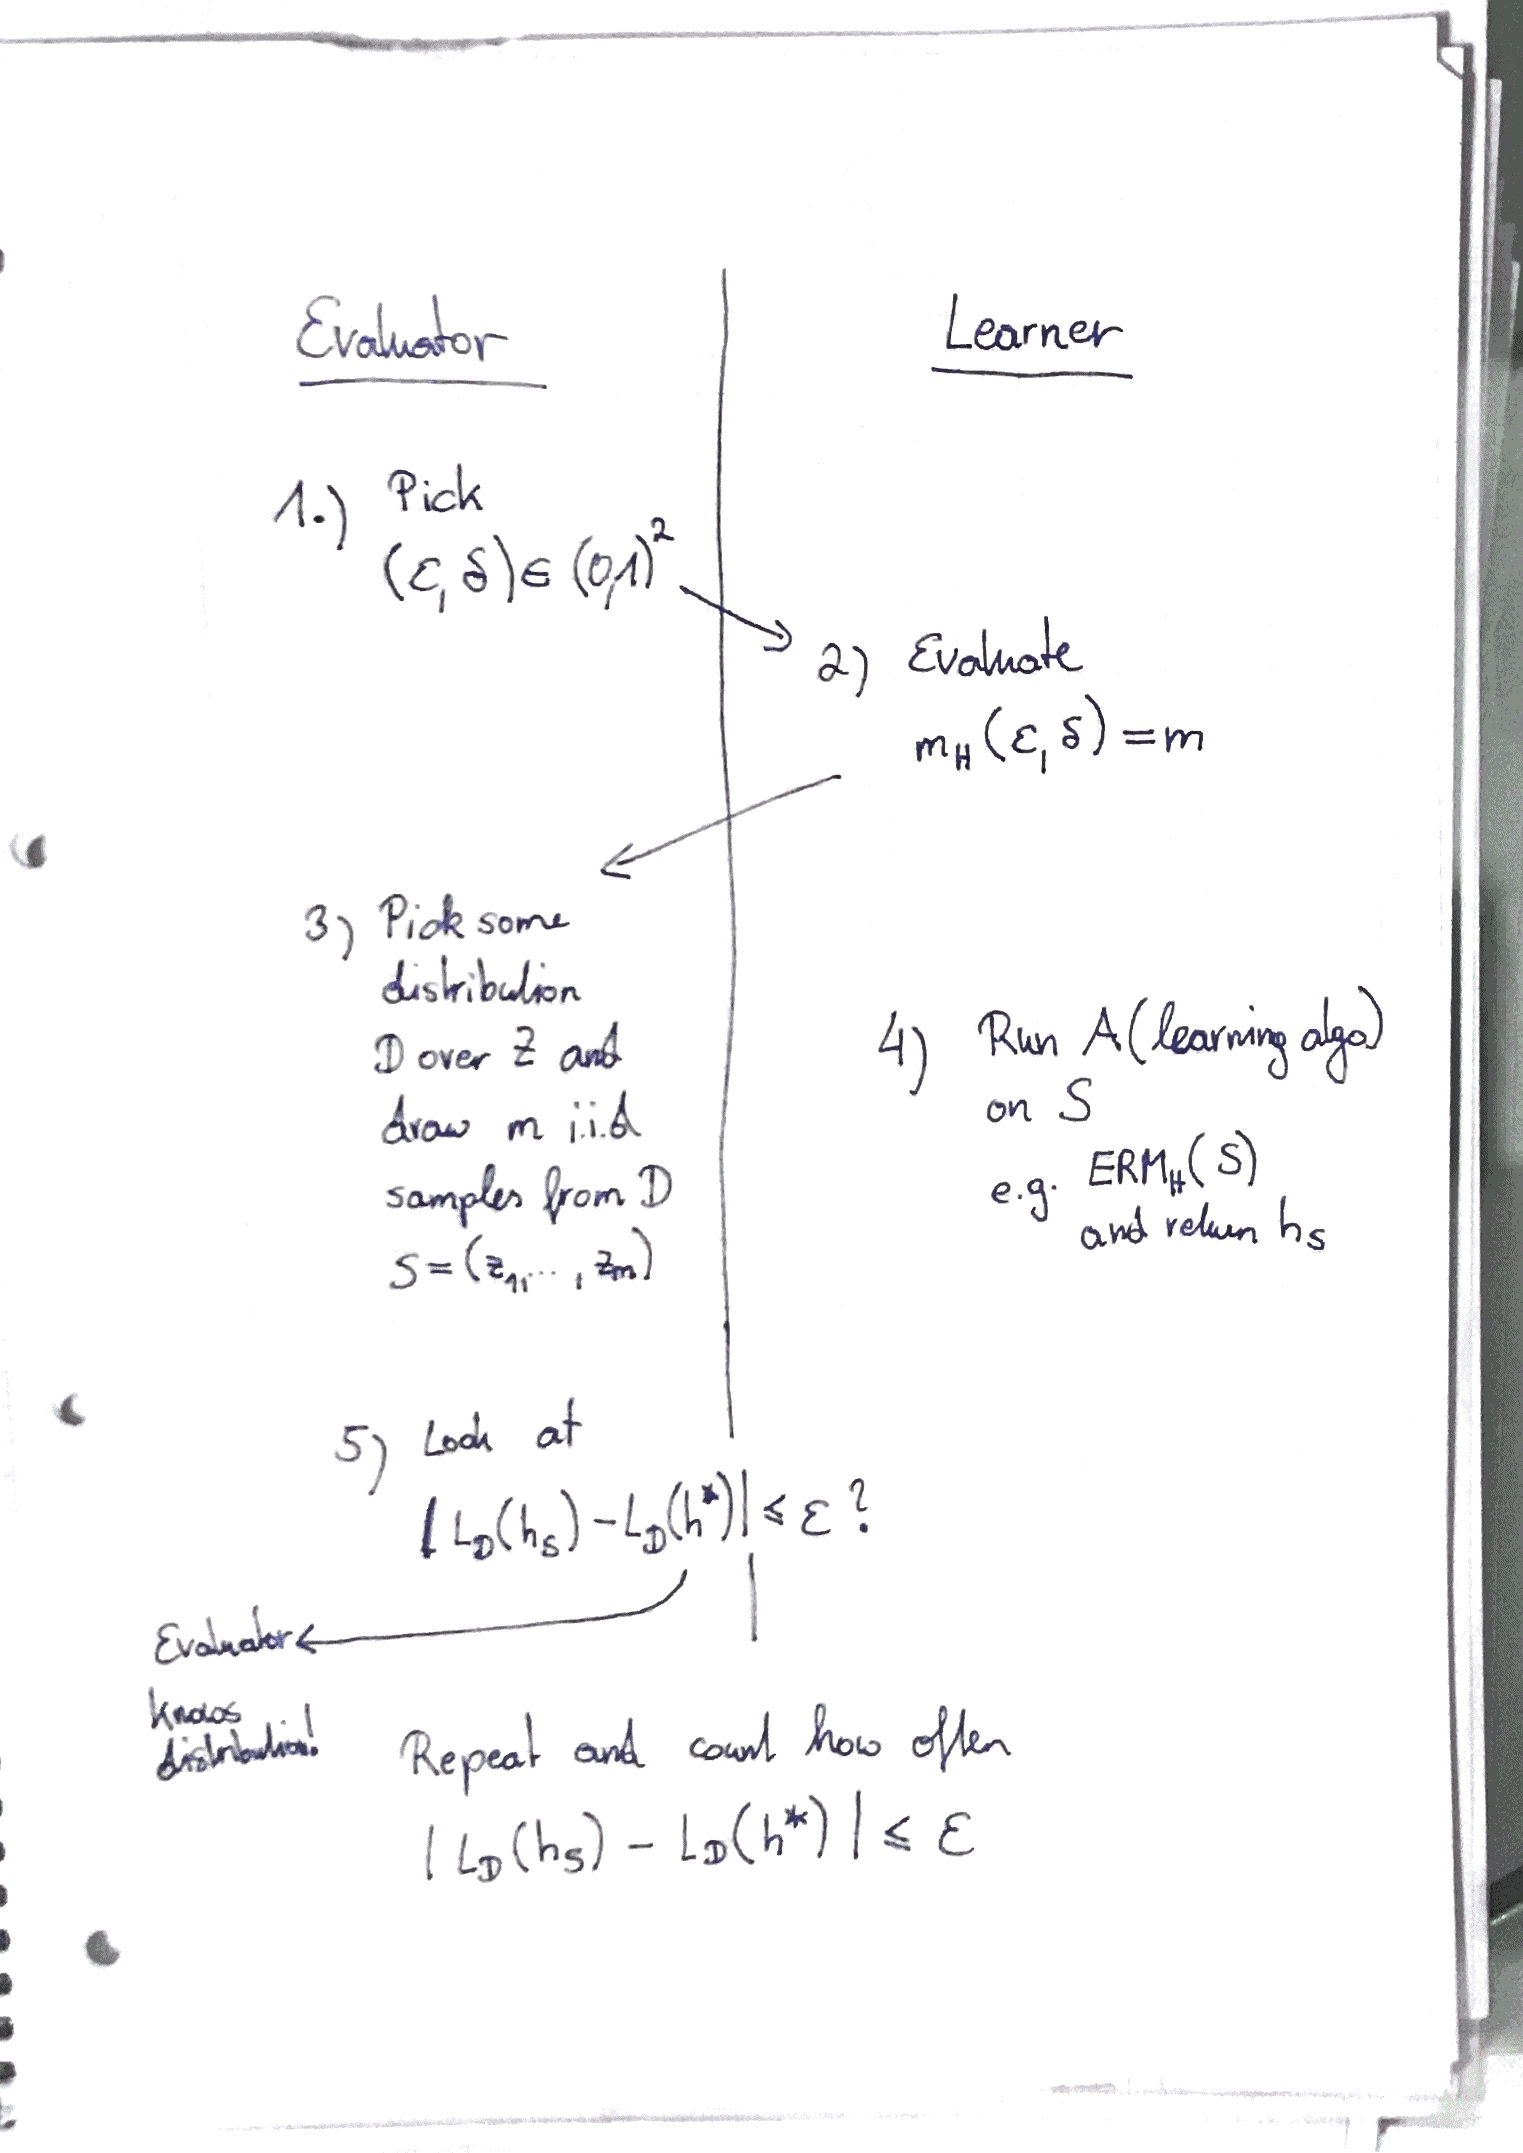 Evaluator
Learner
1.) Pick
(ε, δ) ∈ (0,1)²
2) Evaluate
m_H (ε, δ) = m
3) Pick some
distribution
D over Z and
draw m i.i.d
samples from D
S = (z_1, ..., z_m)
4) Run A (learning algo)
on S
e.g. ERM_H(S)
and return h_S
5) Look at
| L_D(h_S) - L_D(h*) | ≤ ε ?
Evaluator
knows
distribution!
Repeat and count how often
| L_D(h_S) - L_D(h*) | ≤ ε